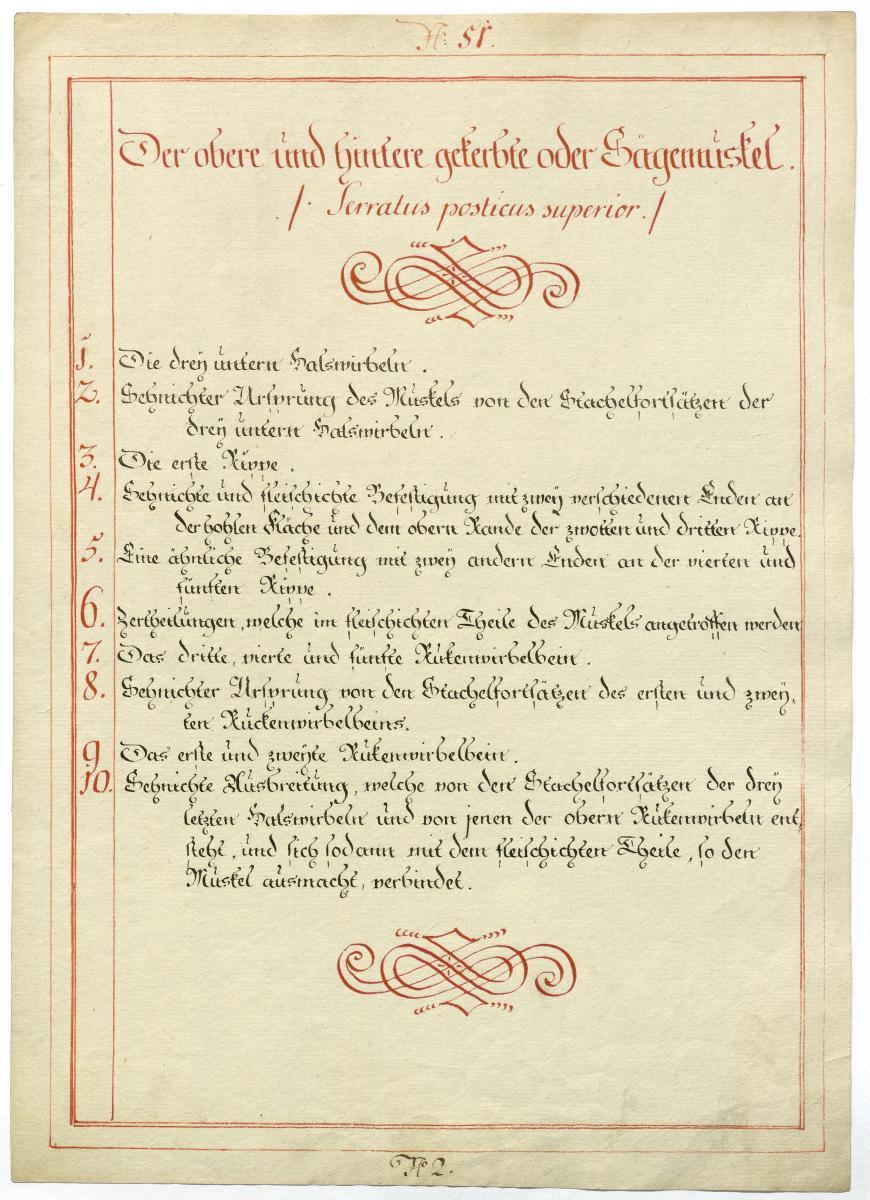 N: 51.
Der obere und hintere gekerbte oder Sägemuskel.
/· Serratus posticus superior. /
1. Die drey untern Halswirbeln.
2. Sehnichter Ursprung des Muskels von den Stachelfortsätzen der
drey untern Halswirbeln.
3. Die erste Rippe.
4. Sehnichte und fleischichte Befestigung mit zwey verschiedenen Enden an
der hohlen Fläche und dem obern Rande der zwotten und dritten Rippe.
5. Eine ähnliche Befestigung mit zwey andern Enden an der vierten und
fünften Rippe.
6. Zertheilungen, welche im fleischichten Theile des Muskels angetroffen werden
7. Das dritte, vierte und fünfte Rukenwirbelbein.
8. Sehnichter Ursprung von den Stachelfortsätzen des ersten und zwey,
ten Ruckenwirbelbeins.
9 Das erste und zweyte Rukenwirbelbein.
10. Sehnichte Ausbreitung, welche von den Stachelfortsätzen der drey
letzten Halswirbeln und von jenen der obern Rukenwirbeln ent,
steht, und sich sodann mit dem fleischichten Theile, so den
Muskel ausmacht, verbindet.
No 2.